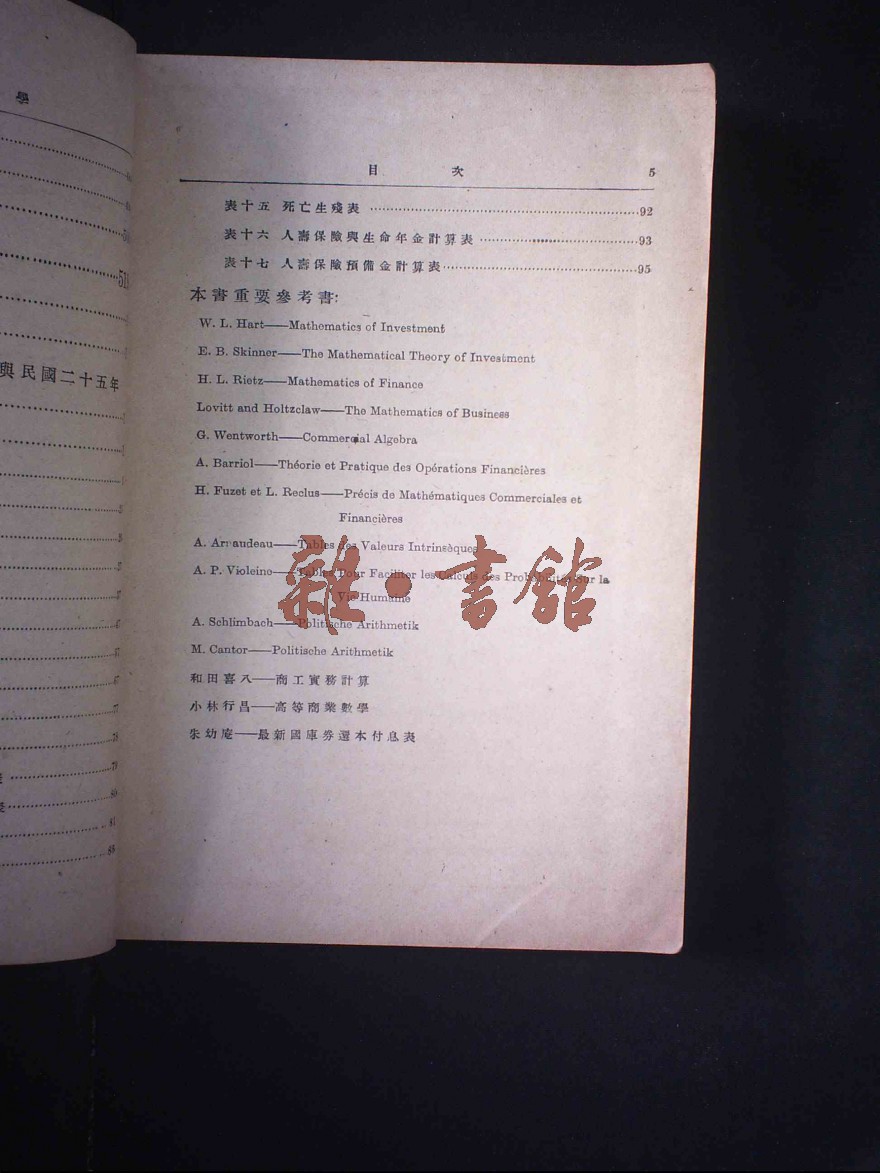 學
518
與民國二十五年
目 次 5
表十五 死亡生殘表 ……92
表十六 人壽保險與生命年金計算表 ……93
表十七 人壽保險預備金計算表……95
本書重要參考書:
W. L. Hart——Mathematics of Investment
E. B. Skinner——The Mathematical Theory of Investment
H. L. Rietz——Mathematics of Finance
Lovitt and Holtzclaw——The Mathematics of Business
G. Wentworth——Commercial Algebra
A. Barriol——Théorie et Pratique des Opérations Financières
H. Fuzet et L. Reclus——Précis de Mathématiques Commerciales et
Financières
A. Arnaudeau——Tables des Valeurs Intrinsèques
A. P. Violeine——Tables Pour Faciliter les Calculs des Probabilités sur la
Vie Humaine
A. Schlimbach——Politische Arithmetik
M. Cantor——Politische Arithmetik
和田喜八——商工實務計算
小林行昌——高等商業數學
朱幼庵——最新國庫券還本付息表
雜·書館